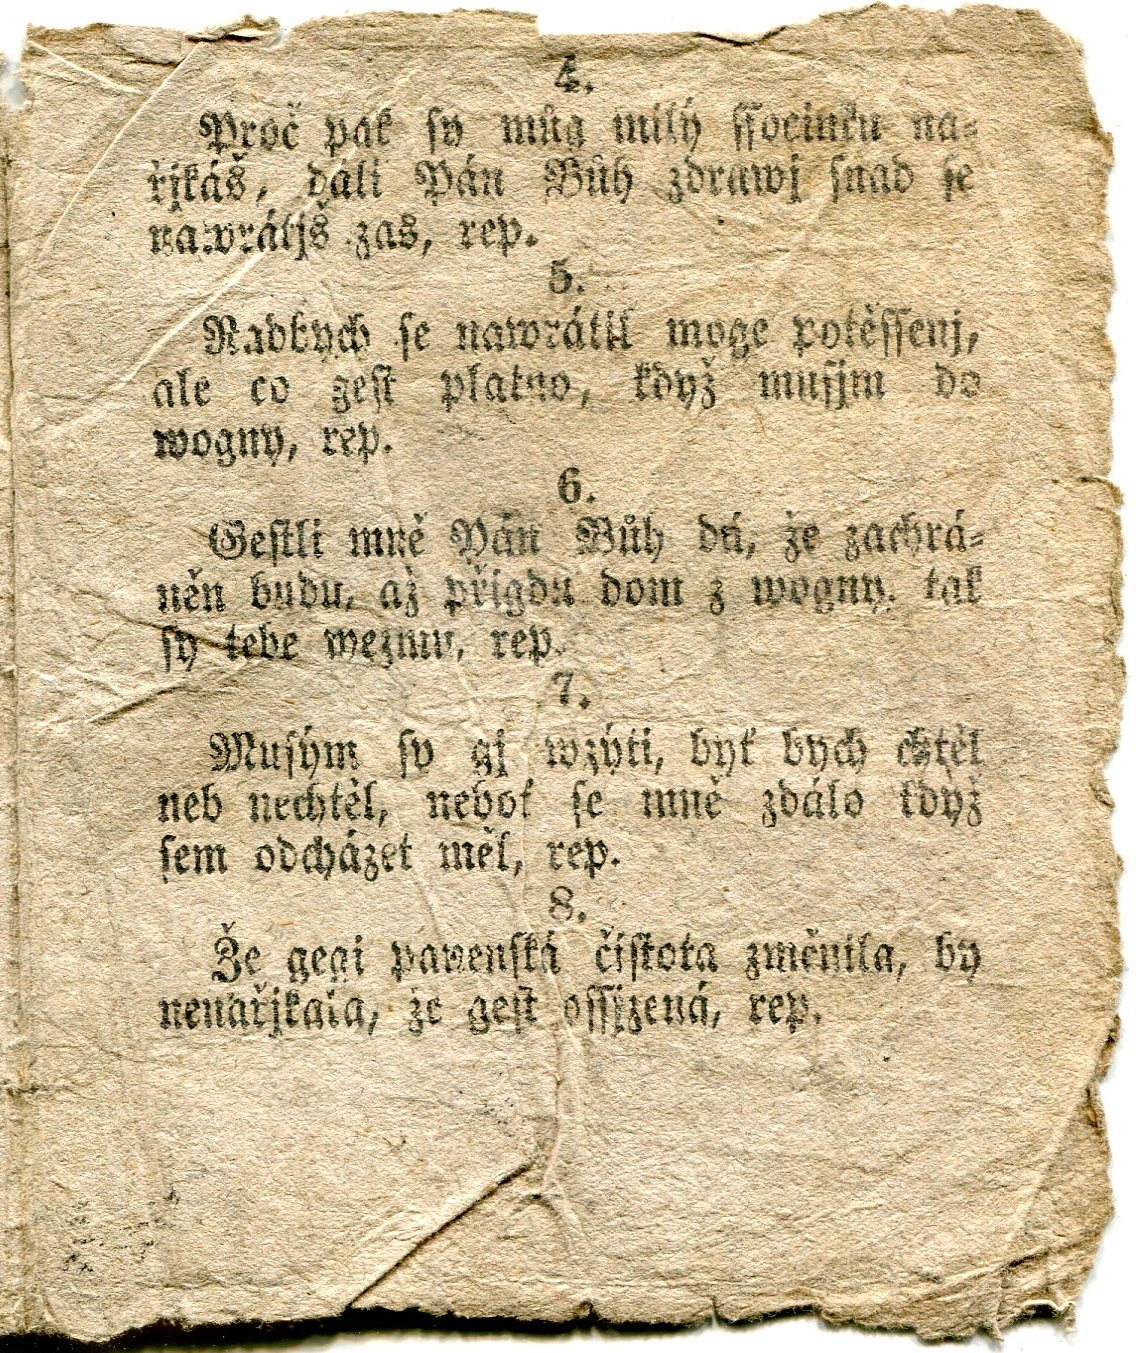 4.
Proč pak sy můg milý ssocinku na=
řjkáš, dali Pán Bůh zdrawj snad se
nawrátjš zas, rep.
5.
Radbych se nawrátil moge potěssenj,
ale co gest platno, když musjm do
wogny, rep.
6.
Gestli mně Pán Bůh dá, že zachrá=
něn budu, až přigdu dom z wogny, tak
sy tebe wezmu, rep.
7.
Musým sy gj wzýti, byť bych chtěl
neb nechtěl, neboť se mně zdálo když
sem odcházet měl, rep.
8.
Že gegi panenská čistota změnila, by
nenařjkala, že gest ossizená, rep.